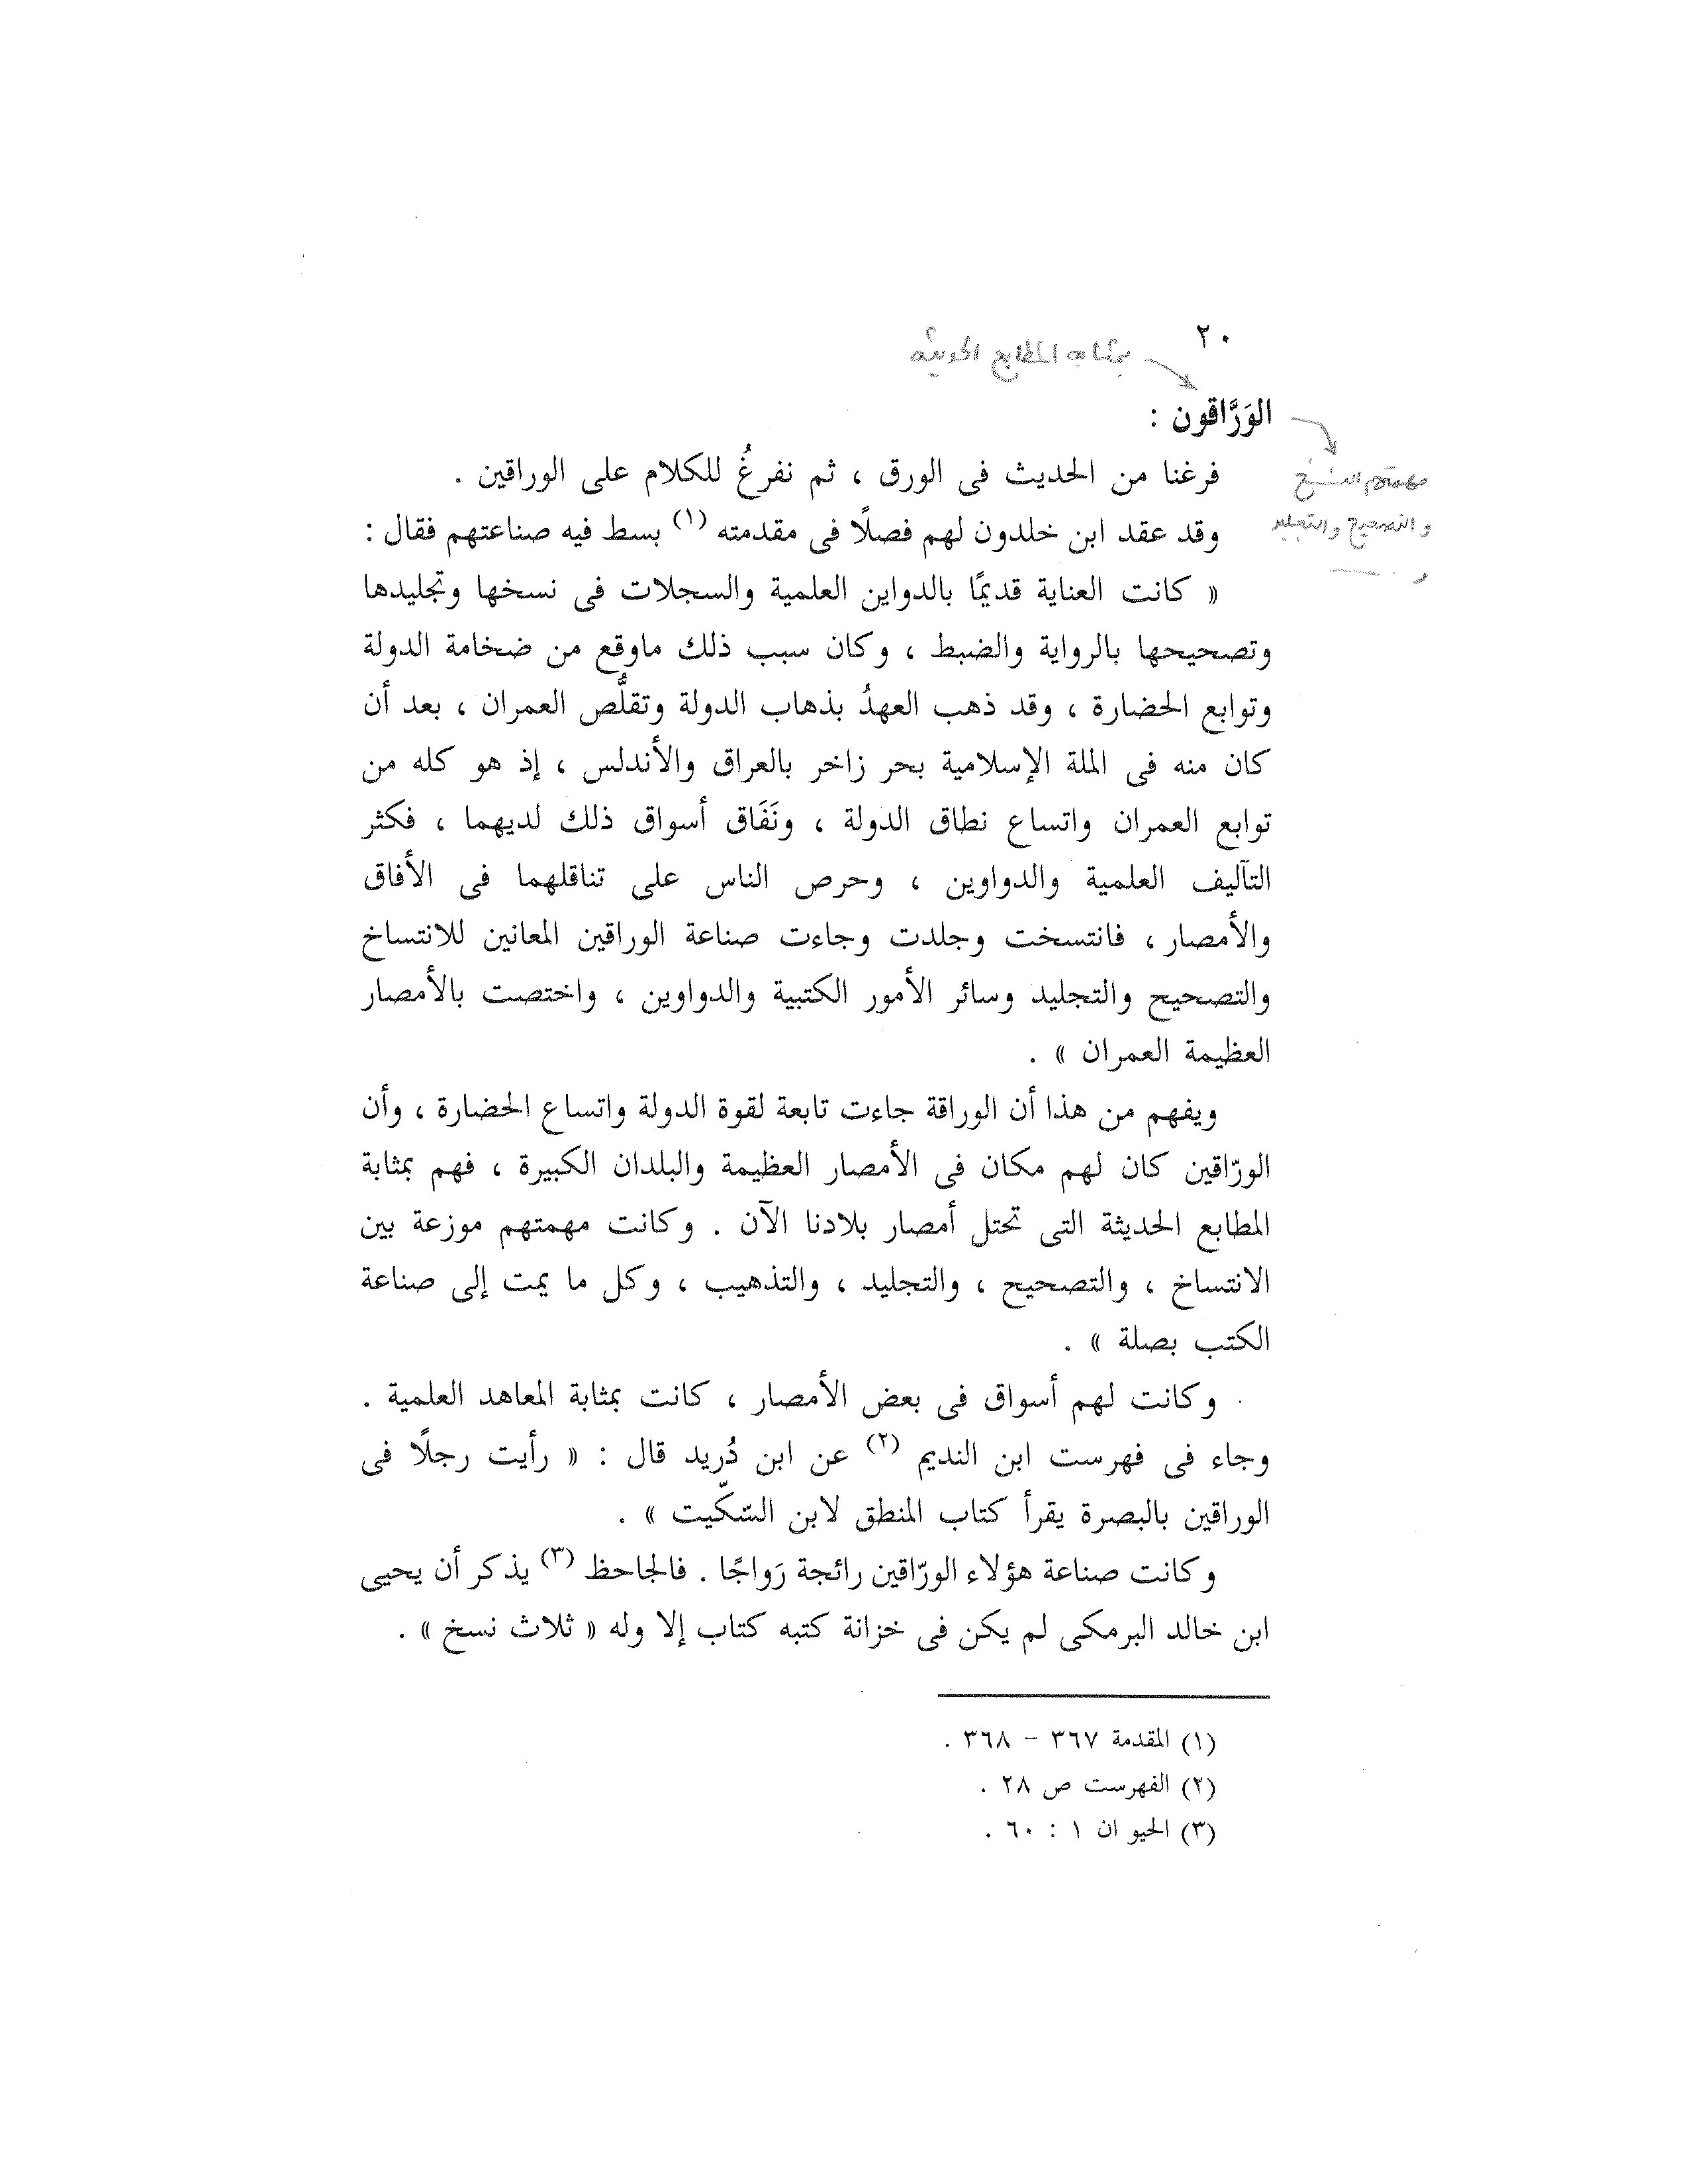 ٢٠
بمثابة المطابع الحديثة
الوَرَّاقون :
مهمتهم النسخ
و التصحيح و التجليد
و
فرغنا من الحديث فى الورق ، ثم نفرغُ للكلام على الوراقين .
وقد عقد ابن خلدون لهم فصلًا فى مقدمته (١) بسط فيه صناعتهم فقال :
« كانت العناية قديمًا بالدواين العلمية والسجلات فى نسخها وتجليدها
وتصحيحها بالرواية والضبط ، وكان سبب ذلك ماوقع من ضخامة الدولة
وتوابع الحضارة ، وقد ذهب العهدُ بذهاب الدولة وتقلُّص العمران ، بعد أن
كان منه فى الملة الإسلامية بحر زاخر بالعراق والأندلس ، إذ هو كله من
توابع العمران واتساع نطاق الدولة ، ونَفَاق أسواق ذلك لديهما ، فكثر
التآليف العلمية والدواوين ، وحرص الناس على تناقلهما فى الأفاق
والأمصار ، فانتسخت وجلدت وجاءت صناعة الوراقين المعانين للانتساخ
والتصحيح والتجليد وسائر الأمور الكتبية والدواوين ، واختصت بالأمصار
العظيمة العمران » .
ويفهم من هذا أن الوراقة جاءت تابعة لقوة الدولة واتساع الحضارة ، وأن
الورّاقين كان لهم مكان فى الأمصار العظيمة والبلدان الكبيرة ، فهم بمثابة
المطابع الحديثة التى تحتل أمصار بلادنا الآن . وكانت مهمتهم موزعة بين
الانتساخ ، والتصحيح ، والتجليد ، والتذهيب ، وكل ما يمت إلى صناعة
الكتب بصلة » .
وكانت لهم أسواق فى بعض الأمصار ، كانت بمثابة المعاهد العلمية .
وجاء فى فهرست ابن النديم (٢) عن ابن دُريد قال : « رأيت رجلًا فى
الوراقين بالبصرة يقرأ كتاب المنطق لابن السّكّيت » .
وكانت صناعة هؤلاء الورّاقين رائجة رَواجًا . فالجاحظ (٣) يذكر أن يحيى
ابن خالد البرمكى لم يكن فى خزانة كتبه كتاب إلا وله « ثلاث نسخ » .
(١) المقدمة ٣٦٧ – ٣٦٨ .
(٢) الفهرست ص ٢٨ .
(٣) الحيو ان ١ : ٦٠ .